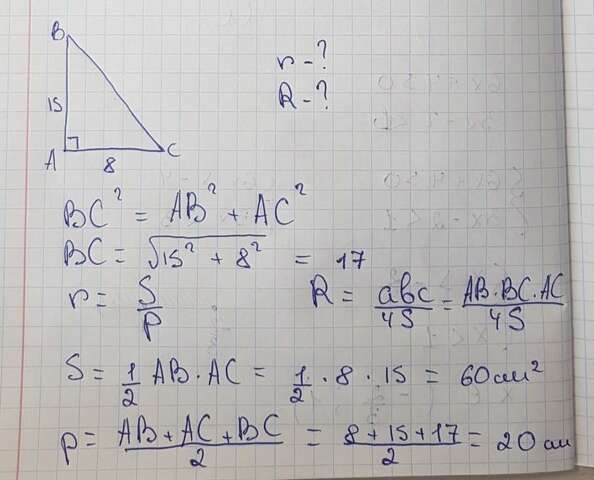 B
r - ?
R - ?
15
A
8
C
BC² = AB² + AC²
BC = √15² + 8² = 17
r = S/p R = abc/4S = AB·BC·AC/4S
S = 1/2 AB·AC = 1/2 · 8 · 15 = 60 см²
p = AB + AC + BC/2 = 8 + 15 + 17/2 = 20 см